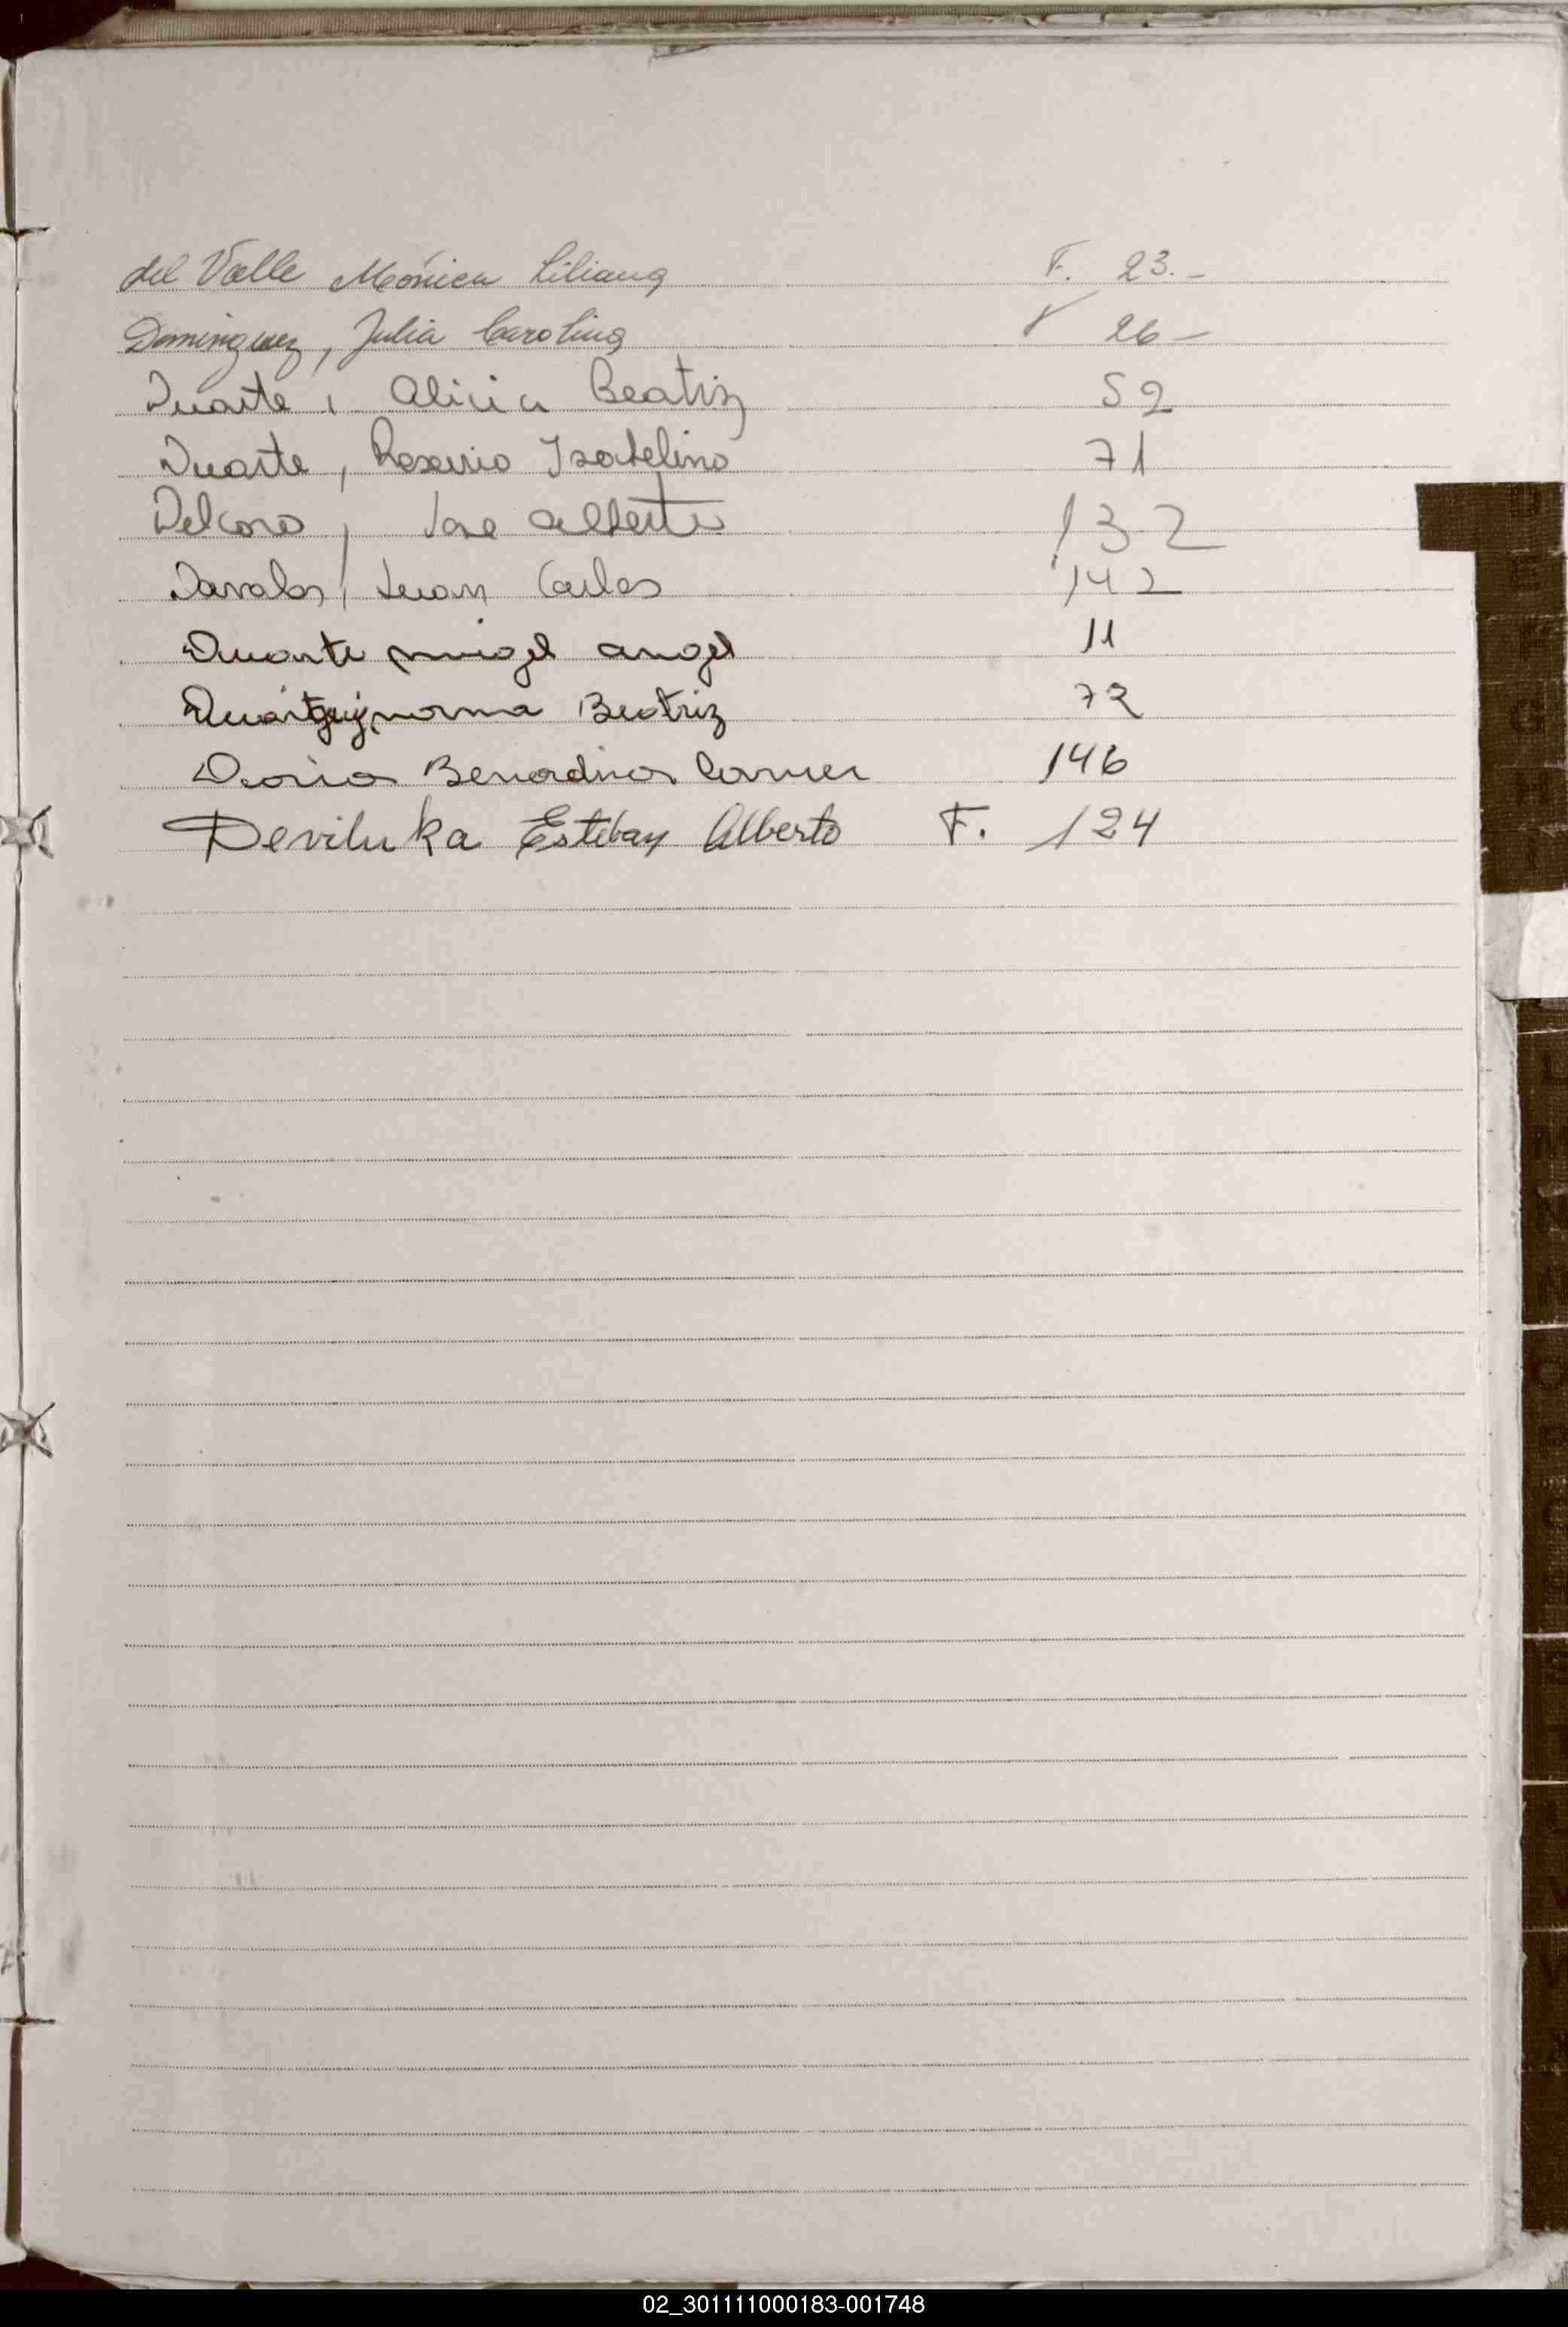 del Valle Mónica Liliana F. 23.-
Dominguez, Julia Carolina 26-
Duarte, Alicia Beatriz 52
Duarte, Rosario Isabelino 71
Delcoro, Jose Alberto 132
Davalos, Juan Carlos 142
Duarte miguel angel 11
norma Beatriz 72
146
Deviluka Esteban Alberto F. 124
G
02_301111000183-001748